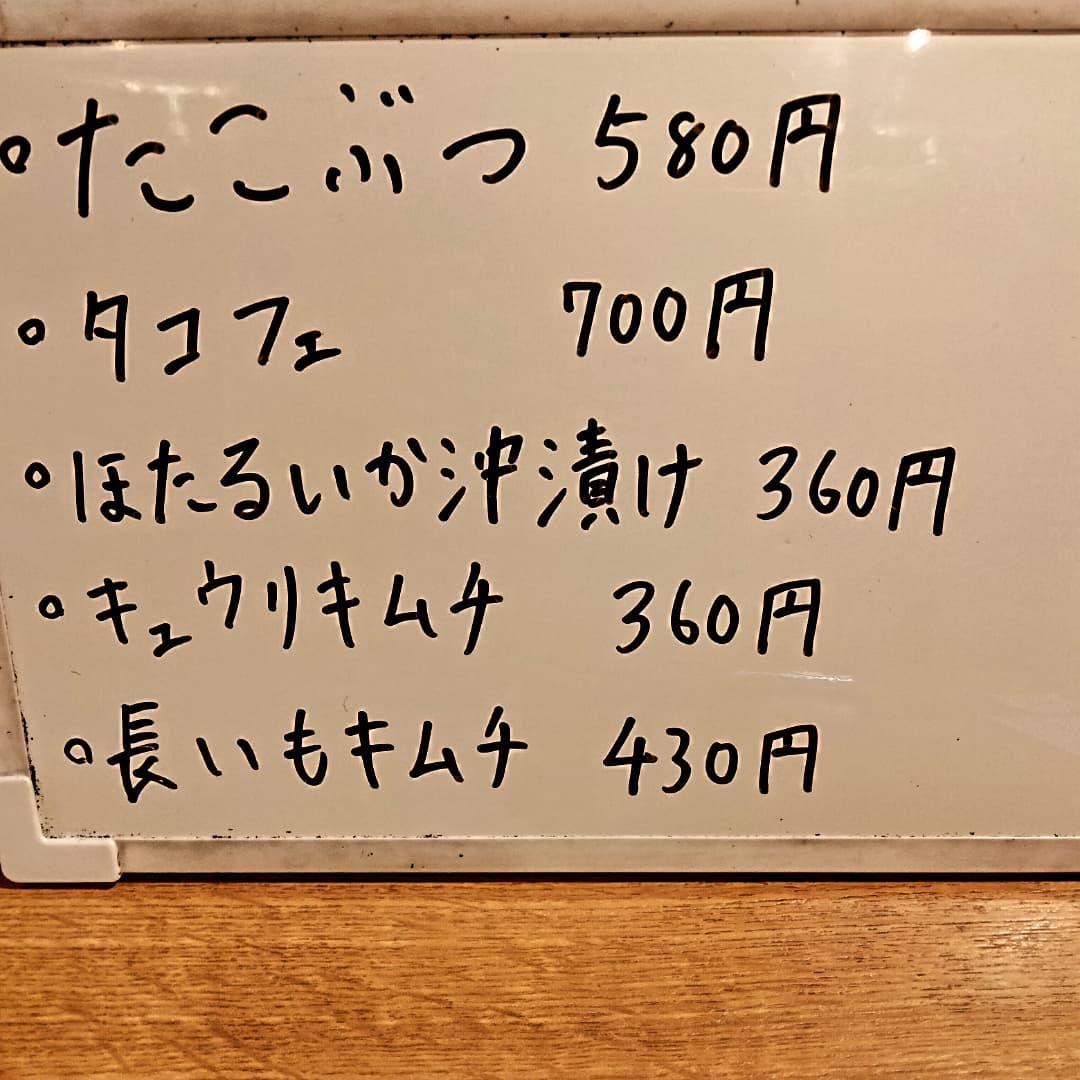 。たこぶつ 580円
。タコフェ 700円
。ほたるいか沖漬け 360円
。キュウリキムチ 360円
。長いもキムチ 430円